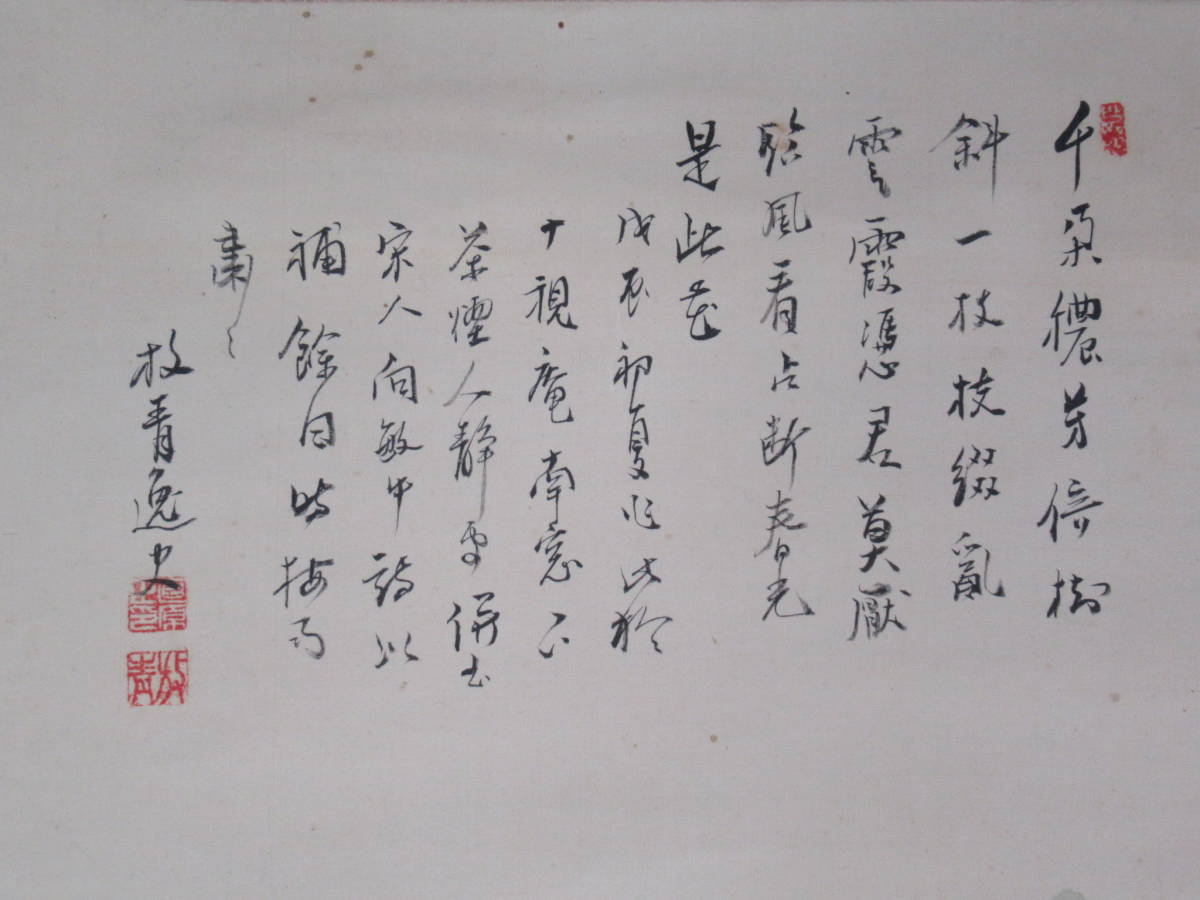 千朶穠芳倚樹
斜一枝枝綴亂
雲霞憑君莫厭
臨風看占断春光
是此花
戊辰初夏作此於
十視庵南窓下
茶煙人静處併書
宋人向敏中詩以
補餘白時梅雨
肅々
牧青逸史
牧青